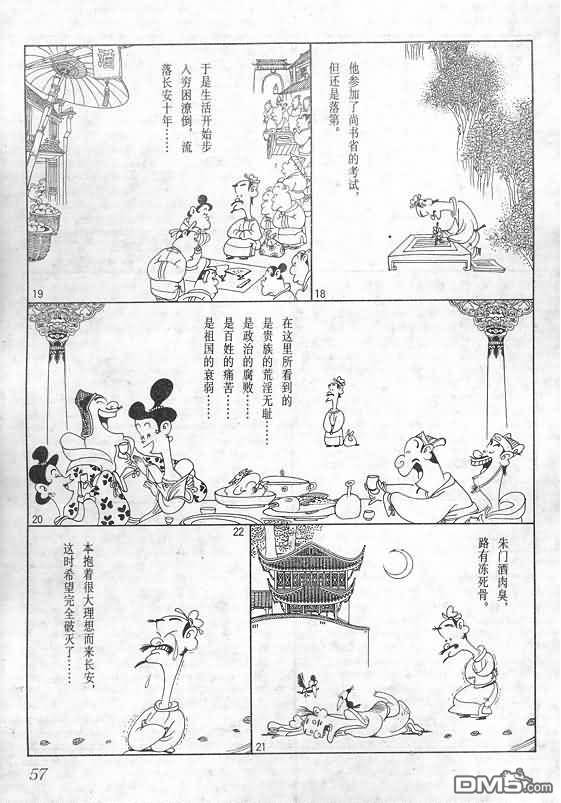 他参加了尚书省的考试，
但还是落第。
18
于是生活开始步
入穷困潦倒，流
落长安十年……
酒
19
在这里所看到的
是贵族的荒淫无耻……
是政治的腐败……
是百姓的痛苦……
是祖国的衰弱……
20
朱门酒肉臭，
路有冻死骨。
21
22
本抱着很大理想而来长安，
这时希望完全破灭了……
57
DM5.com